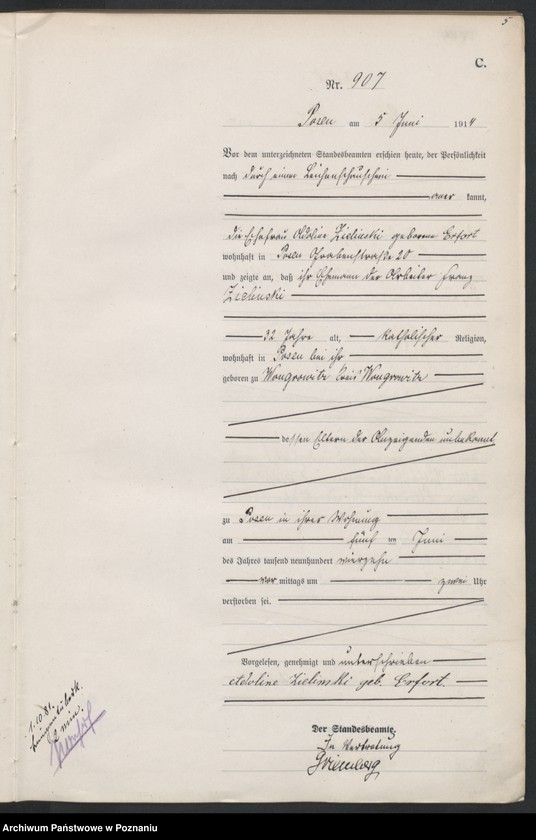 5
C.
Nr. 907
Posen am 5 Juni 1914
Vor dem unterzeichneten Standesbeamten erschien heute, der Persönlichkeit
nach durch einen Leichenschauschein
aner kannt,
die Ehefrau Adoline Zielinski geborene Erfort
wohnhaft in Posen Grabenstraße 20
und zeigte an, daß ihr Ehemann der Arbeiter Franz
Zielinski
32 Jahre alt, katholischer Religion,
wohnhaft in Posen bei ihr
geboren zu Wongrowitz Kreis Wongrowitz
dessen Eltern der Anzeigenden unbekannt
zu Posen in ihrer Wohnung
am fünf ten Juni
des Jahres tausend neunhundert vierzehn
vor mittags um zwei Uhr
verstorben sei.
Vorgelesen, genehmigt und unterschrieben
Adoline Zielinski geb. Erfort.
Der Standesbeamte.
In Vertretung
1.10.81.
Archiwum Państwowe w Poznaniu